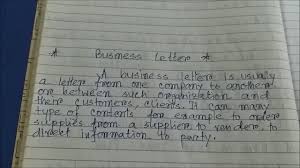 * Business Letter *
A business letters is usually
a letter from one company to another
or between such organization and
there customers, clients. It can many
type of contents for example to order
supplies from a supplier to vendore, to
divekt information to party.